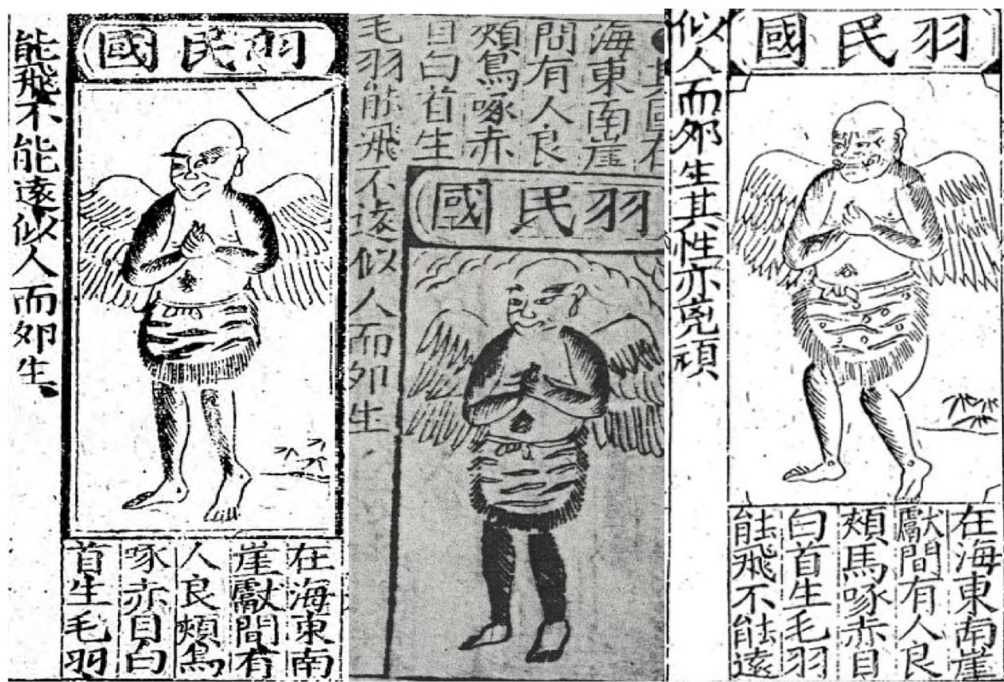 羽民國
在海東南
崖巘間有
人良頰鳥
啄赤目白
首生毛羽
能飛不能遠似人而夘生
其國在
海東南崖
間有人良
頰鳥啄赤
目白首生
毛羽能飛不遠似人而夘生
羽民國
羽民國
在海東南崖
巘間有人良
頰馬啄赤目
白首生毛羽
能飛不能遠
似人而夘生其性亦兇頑